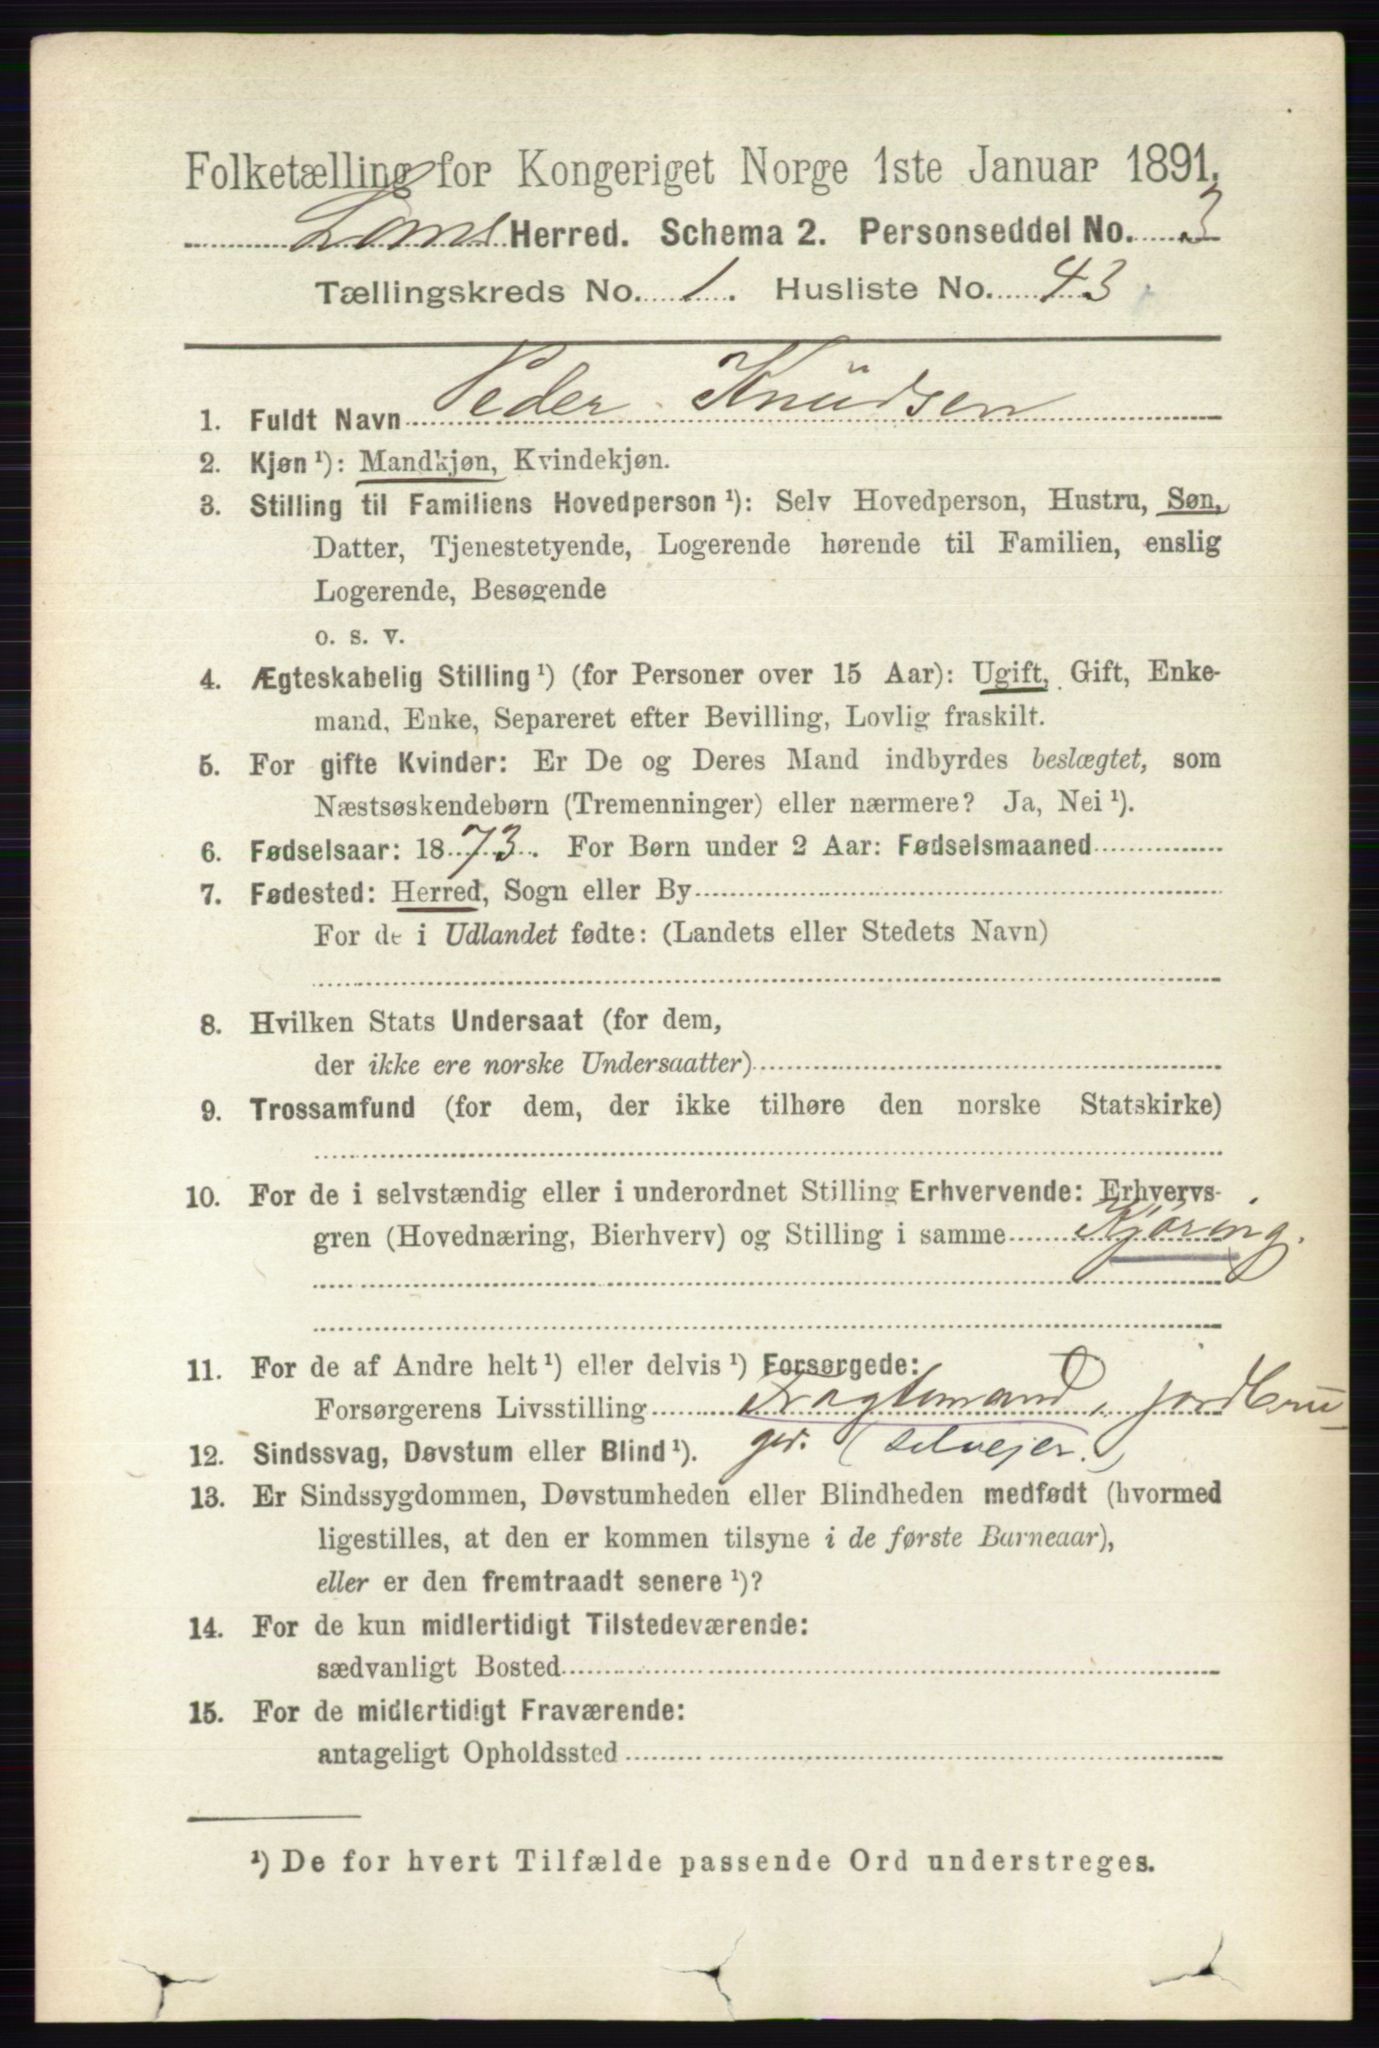 Folketælling for Kongeriget Norge 1ste Januar 1891.
Loms Herred. Schema 2. Personseddel No. 3
Tællingskreds No. 1. Husliste No. 43
1. Fuldt Navn Peder Knudsen
2. Kjøn¹): Mandkjøn, Kvindekjøn.
3. Stilling til Familiens Hovedperson¹): Selv Hovedperson, Hustru, Søn,
Datter, Tjenestetyende, Logerende hørende til Familien, enslig
Logerende, Besøgende
o. s. v.
4. Ægteskabelig Stilling¹) (for Personer over 15 Aar): Ugift, Gift, Enke-
mand, Enke, Separeret efter Bevilling, Lovlig fraskilt.
5. For gifte Kvinder: Er De og Deres Mand indbyrdes beslægtet, som
Næstsøskendebørn (Tremenninger) eller nærmere? Ja, Nei¹).
6. Fødselsaar: 1873. For Børn under 2 Aar: Fødselsmaaned
7. Fødested: Herred, Sogn eller By
For de i Udlandet fødte: (Landets eller Stedets Navn)
8. Hvilken Stats Undersaat (for dem,
der ikke ere norske Undersaatter)
9. Trossamfund (for dem, der ikke tilhøre den norske Statskirke)
10. For de i selvstændig eller i underordnet Stilling Erhvervende: Erhvervs-
gren (Hovednæring, Bierhverv) og Stilling i samme Kjøring.
11. For de af Andre helt¹) eller delvis¹) Forsørgede:
Forsørgerens Livsstilling Fragtemand, jordbru-
12. Sindssvag, Døvstum eller Blind¹). ger. (selvejer.)
13. Er Sindssygdommen, Døvstumheden eller Blindheden medfødt (hvormed
ligestilles, at den er kommen tilsyne i de første Barneaar),
eller er den fremtraadt senere¹)?
14. For de kun midlertidigt Tilstedeværende:
sædvanligt Bosted
15. For de midlertidigt Fraværende:
antageligt Opholdssted
¹) De for hvert Tilfælde passende Ord understreges.